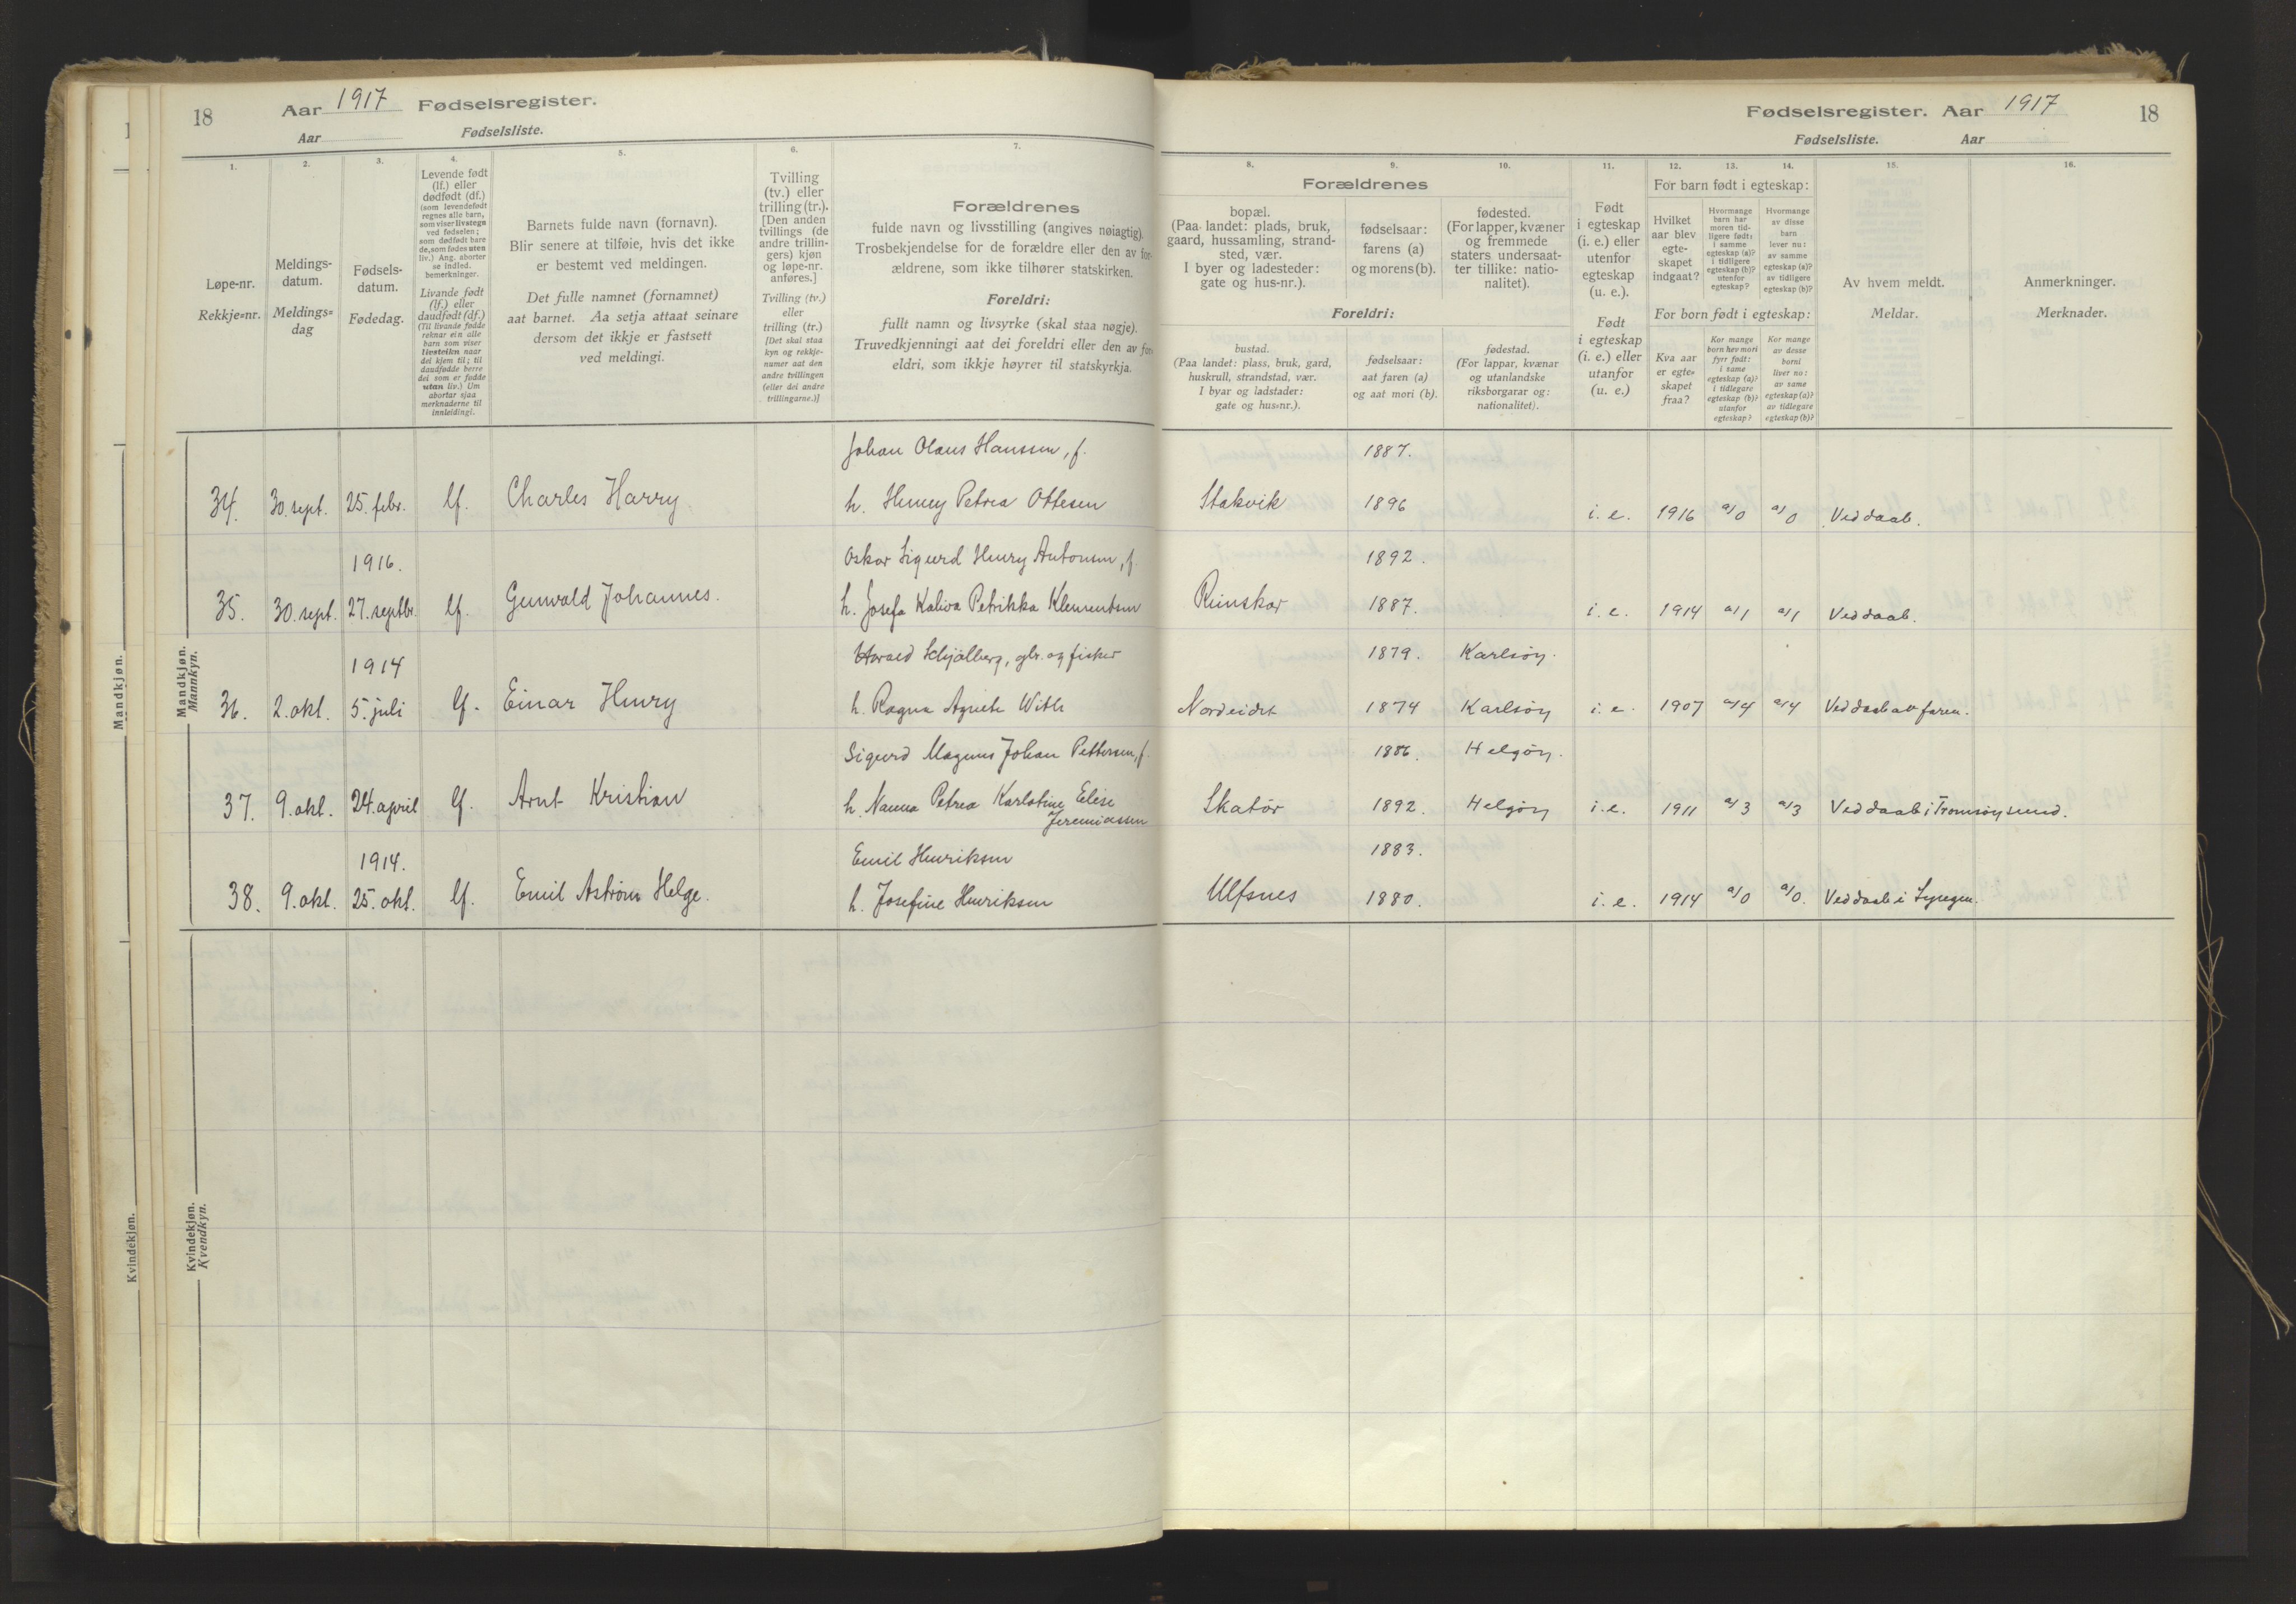 18 Aar 1917 Fødselsregister.
Aar Fødselsliste.
1. 2. 3. 4. 5. 6. 7.
Løpe-nr.
Rekkje=nr.
Meldings-
datum.
Meldings=
dag
Fødsels-
datum.
Fødedag.
Levende født
(lf.) eller
dødfødt (df.)
(som levendefødt
regnes alle barn,
som viser livstegn
ved fødselen;
som dødfødt bare
de, som fødes uten
liv.) Ang. aborter
se indled.
bemerkninger.
Livande født
(lf.) eller
daudfødt (df.)
(Til livande fødde
reknar ein alle
barn som viser
livsteikn naar
dei kjem til; til
daudfødde berre
dei som er fødde
utan liv.) Um
abortar sjaa
merknaderne til
innleidingi.
Barnets fulde navn (fornavn).
Blir senere at tilføie, hvis det ikke
er bestemt ved meldingen.
Det fulle namnet (fornamnet)
aat barnet. Aa setja attaat seinare
dersom det ikkje er fastsett
ved meldingi.
Tvilling
(tv.) eller
trilling (tr.).
[Den anden
tvillings (de
andre trillin-
gers) kjøn
og løpe-nr.
anføres.]
Tvilling (tv.)
eller
trilling (tr.)
[Det skal staa
kyn og rekkje-
numer aat den
andre tvillingen
(eller dei andre
trillingarne.)]
Forældrenes
fulde navn og livsstilling (angives nøiagtig).
Trosbekjendelse for de forældre eller den av for-
ældrene, som ikke tilhører statskirken.
Foreldri:
fullt namn og livsyrke (skal staa nøgje).
Truvedkjenningi aat dei foreldri eller den av for-
eldri, som ikkje høyrer til statskyrkja.
Mandkjøn.
Mandkjøn.
Mannkyn.
Johan Olaus Hanssen, f.
34. 30. sept. 25. febr. lf. Charles Harry h. Henny Petrea Ottesen
1916. Oskar Sigurd Henry Antonsen, f.
35. 30. sept. 27. septbr. lf. Gunvald Johannes. h. Josefa Kaliva Petrikka Klementsen
1914 Harald Schjølberg, gbr. og fisker
36. 2. okt. 5. juli lf. Einar Henry h. Ragna Agnete With
Sigurd Magnus Johan Pettersen, f.
37. 9. okt. 24. april lf. Arnt Kristian h. Nanna Petrea Karlotine Elise
Jeremiassen
1914. Emil Henriksen
38. 9. okt. 25. okt. lf. Emil Astrøm Helge. h. Josefine Henriksen
Kvindekjøn.
Kvindekjøn.
Kvendkyn.
Fødselsregister. Aar 1917 18
Fødselsliste. Aar
8. 9. 10. 11. 12. 13. 14. 15. 16.
Forældrenes
bopæl.
(Paa landet: plads, bruk,
gaard, hussamling, strand-
sted, vær.
I byer og ladesteder:
gate og hus-nr.).
fødselsaar:
farens (a)
og morens (b).
fødested.
(For lapper, kvæner
og fremmede
staters undersaat-
ter tillike: natio-
nalitet).
Foreldri:
bustad.
(Paa landet: plass, bruk, gard,
huskrull, strandstad, vær.
I byar og ladstader:
gate og hus=nr.).
fødselsaar:
aat faren (a)
og aat mori (b).
fødestad.
(For lappar, kvænar
og utanlandske
riksborgarar og:
nationalitet).
Født
i egteskap
(i. e.) eller
utenfor
egteskap
(u. e.).
Født
i egteskap
(i. e.) eller
utanfor
(u. e.)
For barn født i egteskap:
Hvilket
aar blev
egte-
skapet
indgaat?
Hvormange
barn har
moren tid-
ligere født:
i samme
egteskap (a)?
i tidligere
egteskap (b)?
utenfor
egteskap?
Hvormange
av disse
barn
lever nu:
av samme
egteskap (a)?
av tidligere
egteskap (b)?
For born født i egteskap:
Kva aar
er egte=
skapet
fraa?
Kor mange
born hev mori
fyrr født:
i same
egteskap (a)?
i tidlegare
egteskap (b)?
utanfor
egteskap?
Kor mange
av desse
borni
liver no:
av same
egteskap (a)?
av tidlegare
egteskap (b)?
Av hvem meldt.
Meldar.
Anmerkninger.
Merknader.
1887.
Stakvik 1896 i. e. 1916 a/0 a/0 Ved daab.
1892.
Reinskar 1887. i. e. 1914 a/1 a/1 Ved daab.
1879. Karlsøy.
Nordeidet 1874 Karlsøy i. e. 1907 a/4 a/4 Ved daab av faren.
1886. Helgøy.
Skatør 1892. Helgøy i. e. 1911 a/3 a/3 Ved daab i Tromsøysund.
1883.
Ulfsnes 1880. i. e. 1914 a/0 a/0. Ved daab i Lyngen.